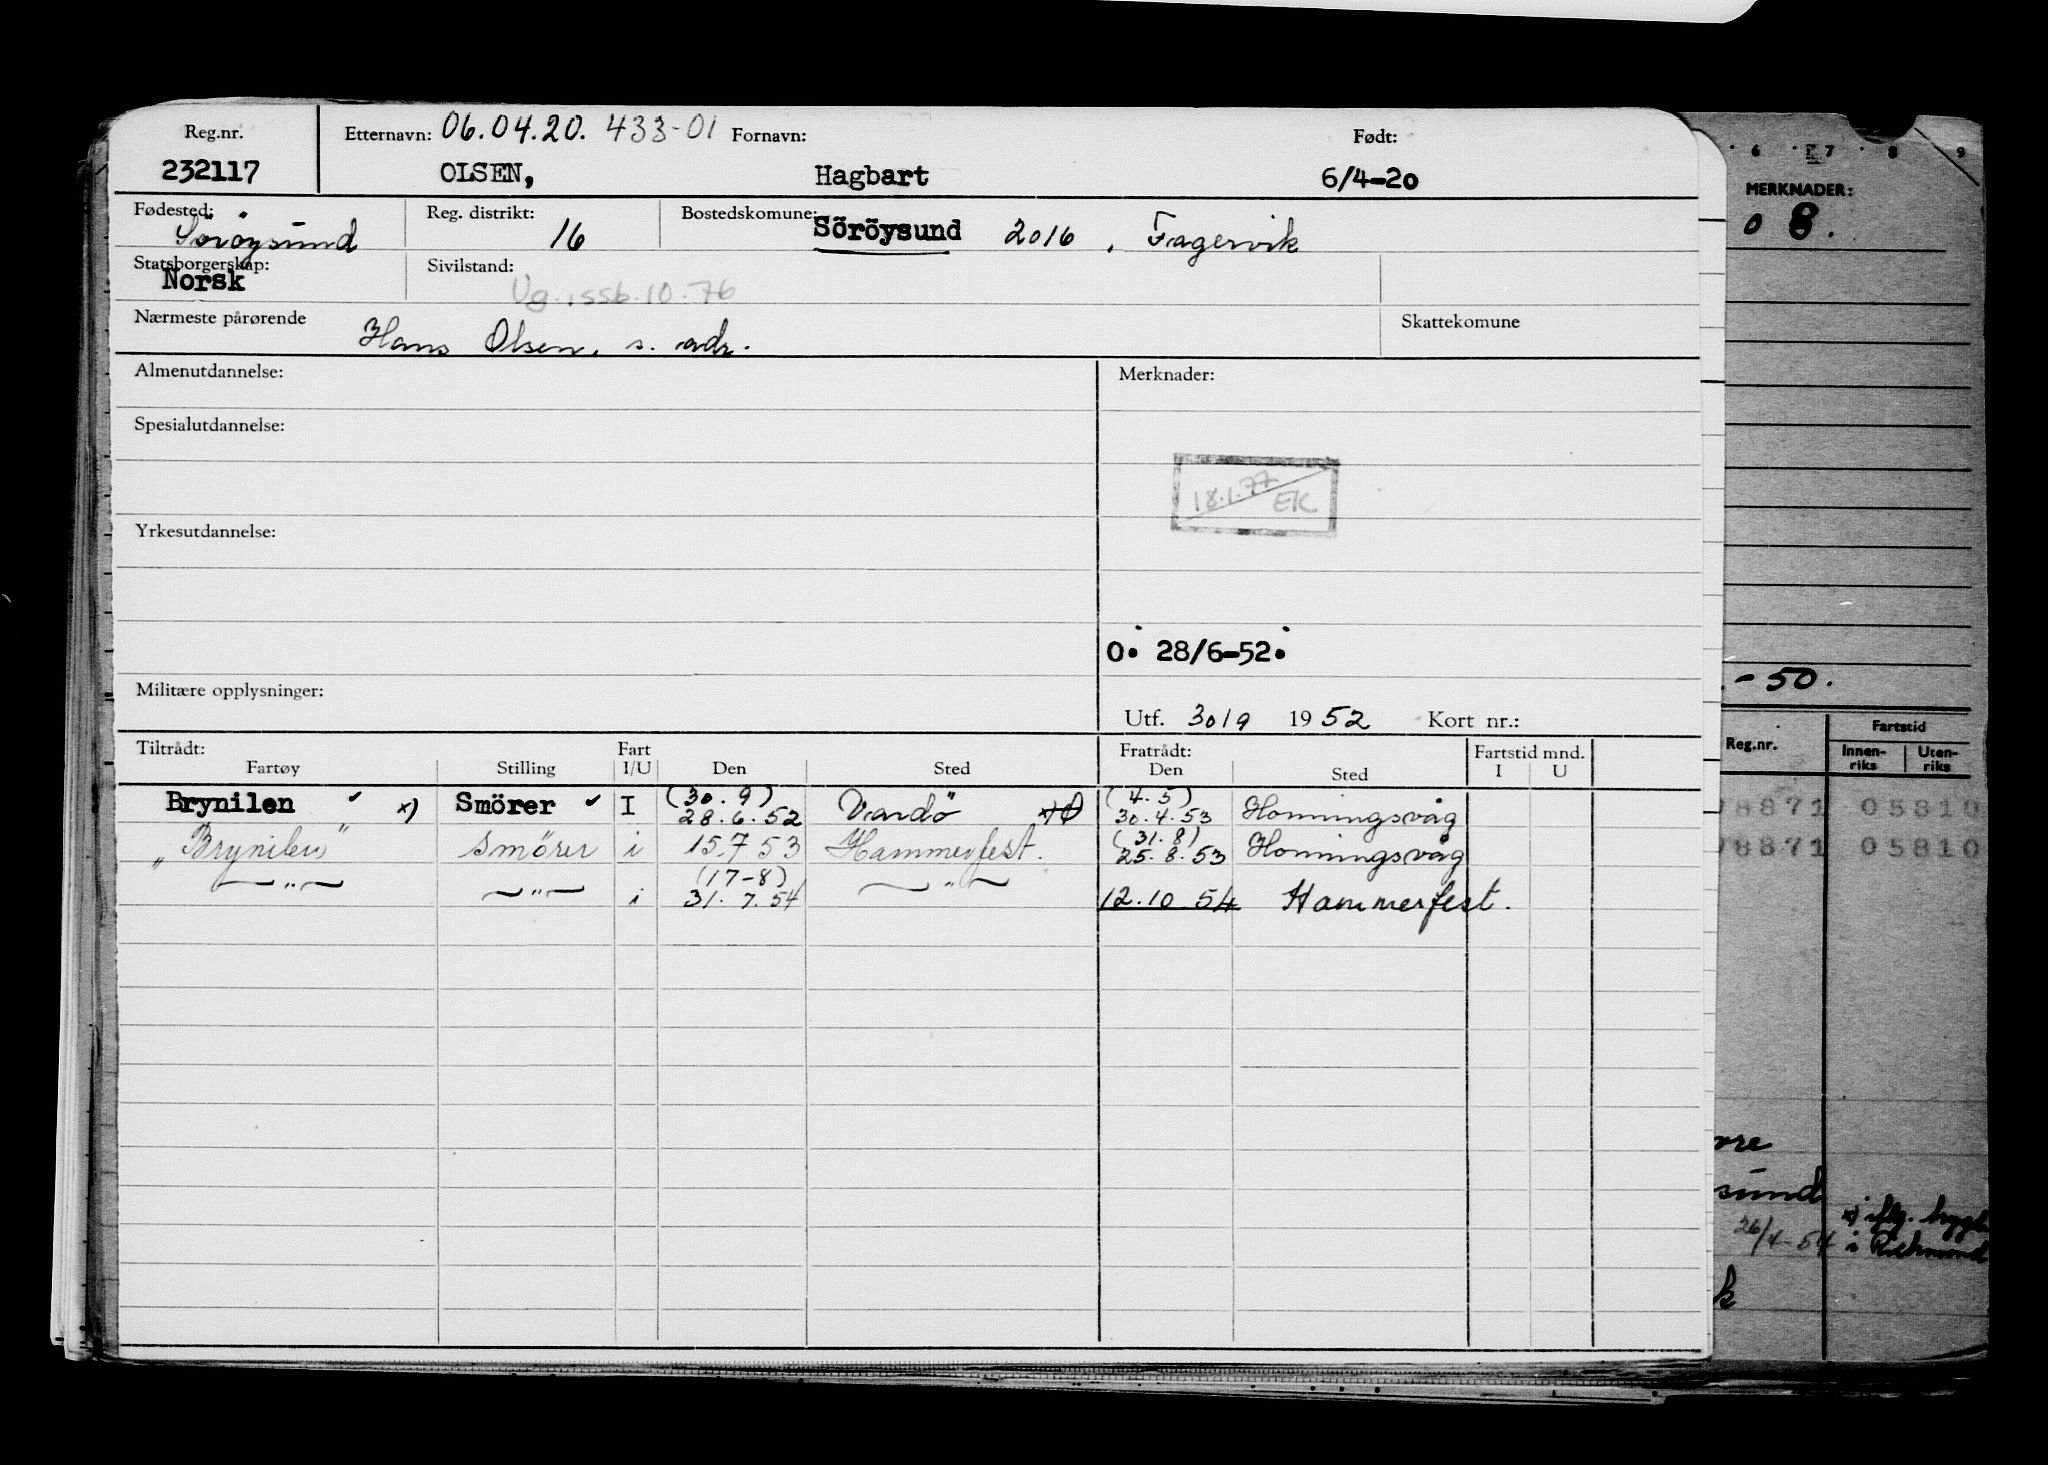 Reg.nr. Etternavn: 06.04.20. 433-01 Fornavn: Født:
232117 OLSEN, Hagbart 6/4-20
Fødested: Reg. distrikt: Bostedskomune:
Söröysund 16 Söröysund 2016 , Fagervik
Statsborgerskap: Sivilstand:
Norsk
Ug. 10.76
Nærmeste pårørende Skattekomune
Hans Olsen, s. adr.
Almenutdannelse: Merknader:
Spesialutdannelse:
18.1.77 EK
Yrkesutdannelse:
O. 28/6-52.
Militære opplysninger:
Utf. 30/9 1952 Kort nr.:
Tiltrådt: Fart Fratrådt: Fartstid mnd.
Fartøy Stilling I/U Den Sted Den Sted I U
(30.9) (4.5)
Brynilen x) Smörer I 28.6.52 Vardö 30.4.53 Honningsvåg
(31.8)
"Brynilen" Smörer i 15.7 53 Hammerfest. 25.8.53 Honningsvåg
(17-8)
—"— —"— i 31.7.54 —"— 12.10 54 Hammerfest.
6 7 8 9
MERKNADER:
0 8.
-50.
Reg.nr. Fartstid
Innen-riks Uten-riks
8871 05810
8871 05810
ore
sund
26/4-54 x) iflg.
i Richmond
k